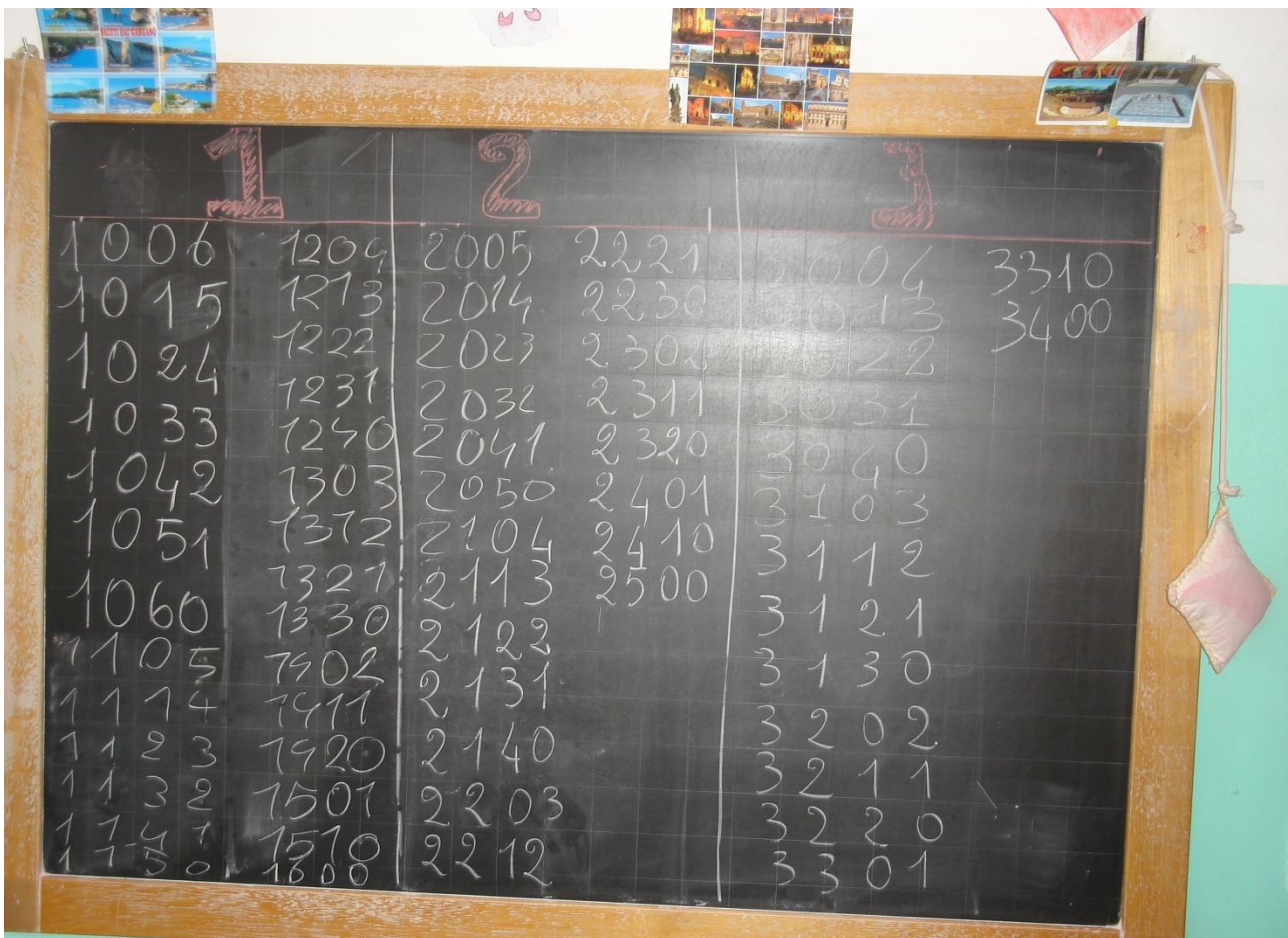 SALUTI DAL GARGANO
1
1006
1015
1024
1033
1042
1051
1060
1105
1114
1123
1132
1141
1150
1204
1213
1222
1231
1240
1303
1312
1321
1330
1402
1411
1420
1501
1510
1600
2
2005
2014
2023
2032
2041
2050
2104
2113
2122
2131
2140
2203
2212
2221
2230
2302
2311
2320
2401
2410
2500
3
3004
3013
3022
3031
3040
3103
3112
3121
3130
3202
3211
3220
3301
3310
3400